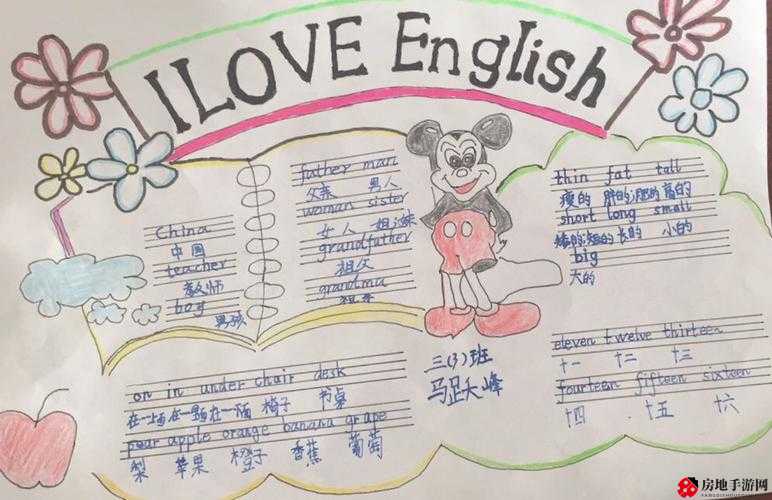 I LOVE English
China
中国
teacher
教师
boy
男孩
father man
父亲 男人
woman sister
女人 姐妹
grandfather
祖父
grandma
thin fat tall
瘦的 胖的;肥的 高的
short long small
矮的;短的 长的 小的
big
大的
三(3)班
eleven twelve thirteen
十一 十二 十三
fourteen fifteen sixteen
十四 十五 十六
on in under chair desk
椅子 书桌
pear apple orange banana grape
梨 苹果 橙子 香蕉 葡萄
房地手游网